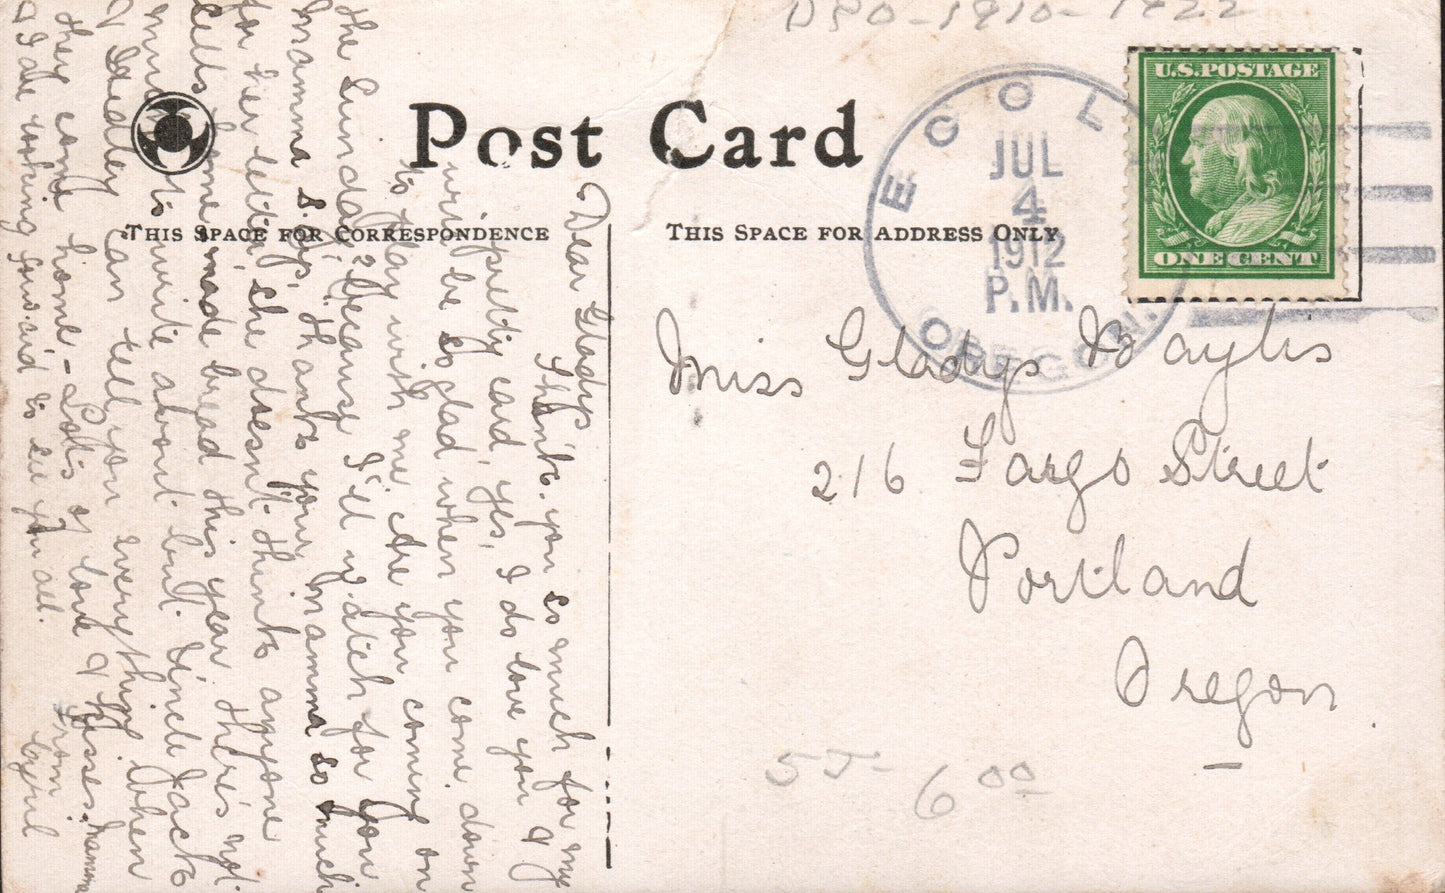 DPO-1910-1922
U.S. POSTAGE
ONE CENT
ECOL
JUL
4
1912
P.M.
OREGON.
Post Card
THIS SPACE FOR CORRESPONDENCE
THIS SPACE FOR ADDRESS ONLY
Miss Gladys Bayles
216 Fargo Street
Portland
Oregon
5J- 6 00
Dear Gladys
Thank. you so much for my
pretty card, yes, I do love you &
will be so glad when you come down
to play with me Are you coming on
the Sunday? Because I'll watch for you
Mamma says, thank your mamma so much
for her letter, she doesn't think anyone
sells home made bread this year there's not
much to write about but Uncle Jack
& Hedley can tell you everything when
they come home - Lots of love & kisses. Mamma
& I are looking forward to see you all.
From
Cyril